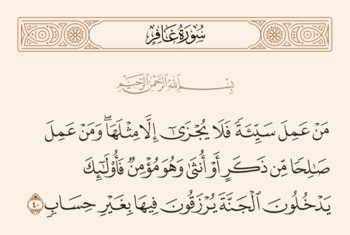 سُورَةُ غَافِرٍ
بِسْمِ ٱللَّهِ ٱلرَّحْمَٰنِ ٱلرَّحِيمِ
مَنْ عَمِلَ سَيِّئَةً فَلَا يُجْزَىٰٓ إِلَّا مِثْلَهَا ۖ وَمَنْ عَمِلَ
صَٰلِحًا مِّن ذَكَرٍ أَوْ أُنثَىٰ وَهُوَ مُؤْمِنٌ فَأُو۟لَٰٓئِكَ
يَدْخُلُونَ ٱلْجَنَّةَ يُرْزَقُونَ فِيهَا بِغَيْرِ حِسَابٍ ٤٠